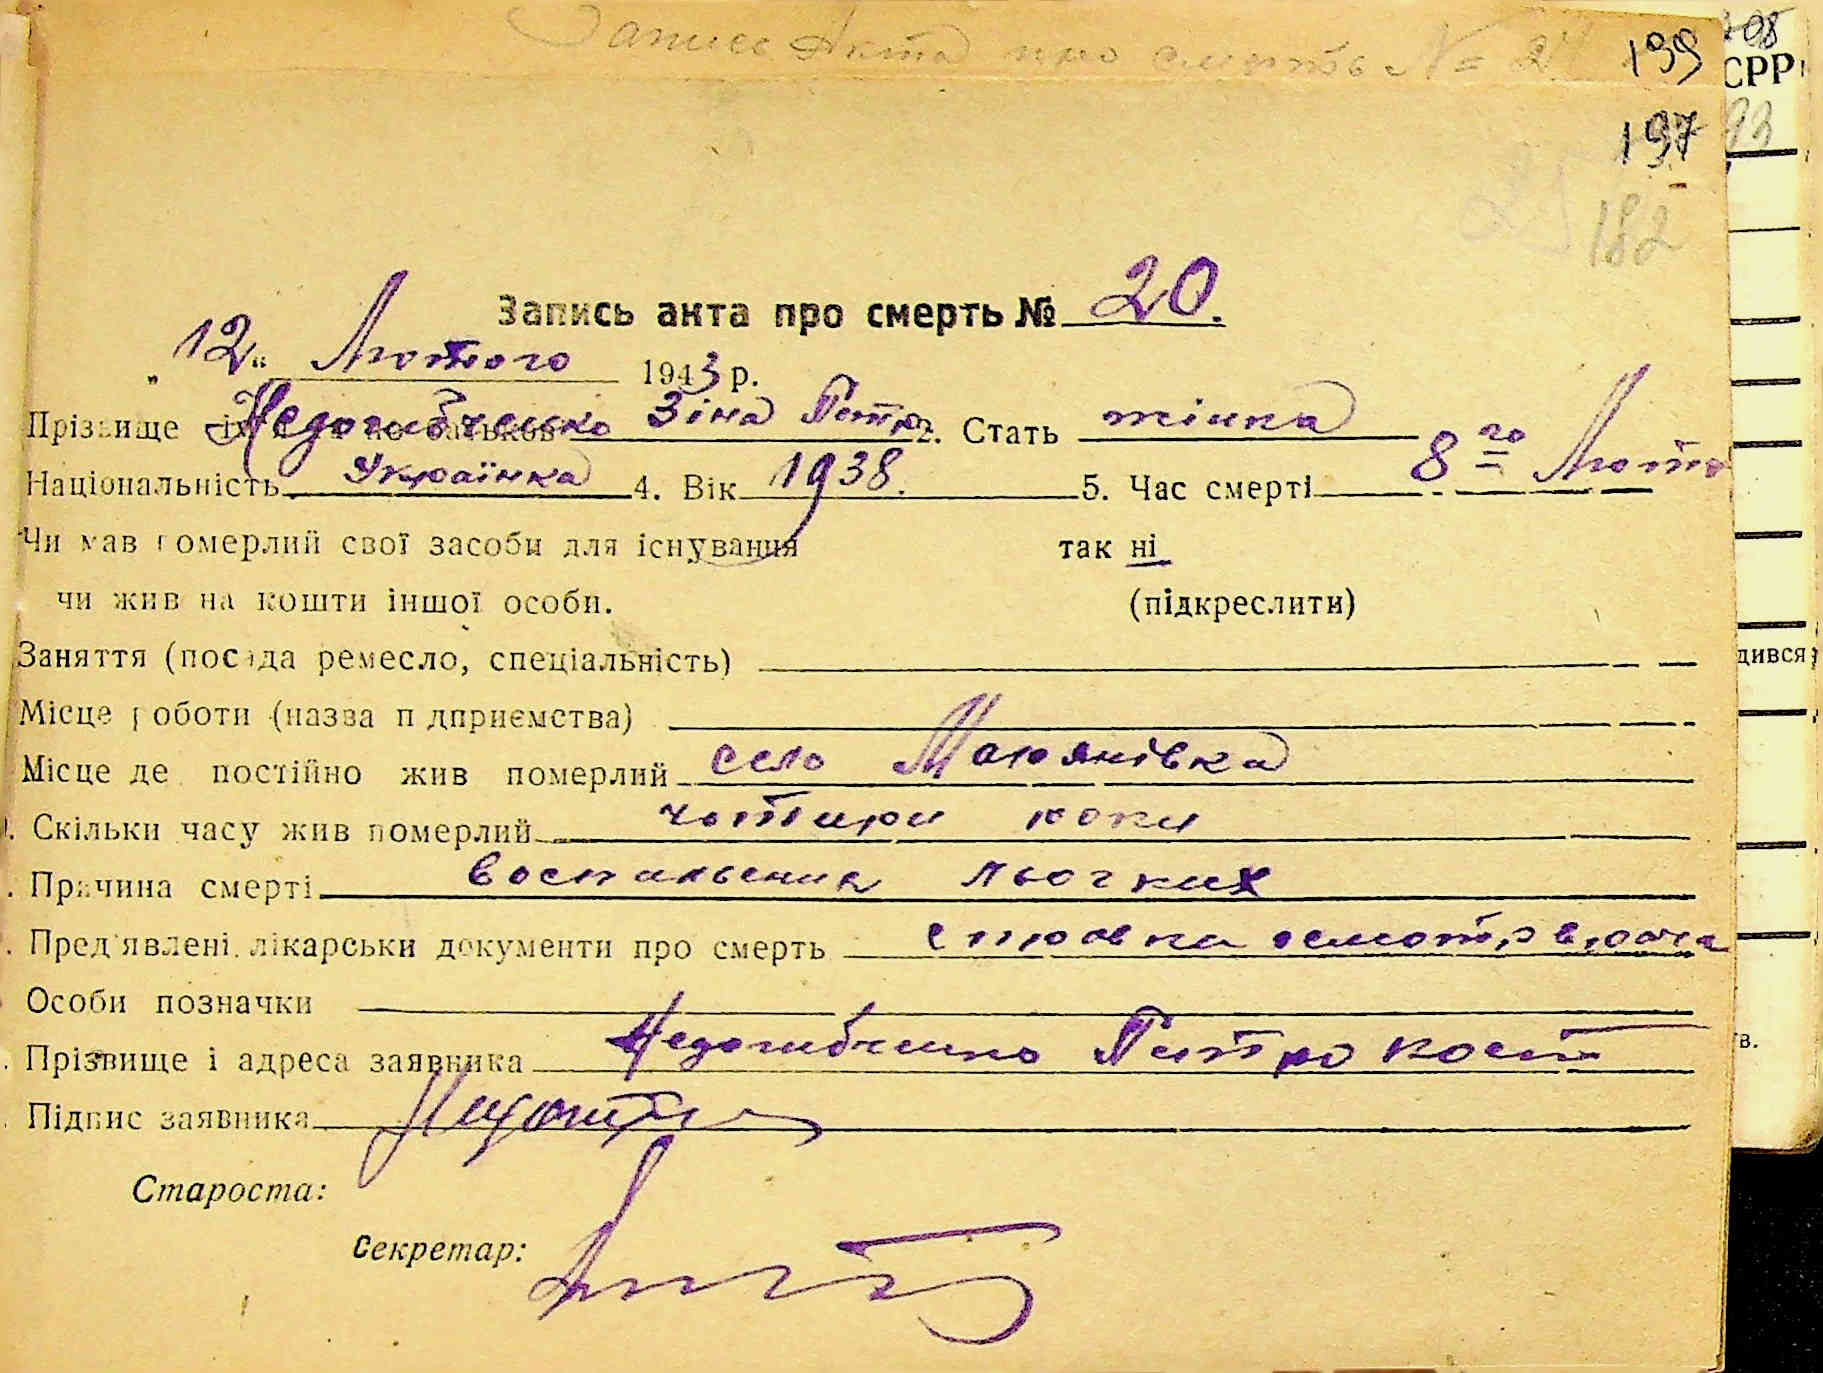 Запись Акта про смерть N= 24
199
197
182
Запись акта про смерть № 20.
„12“ Лютого 1943 р.
Прізвище ім'я та по батькові Недогибченко Зіна Петр. 2. Стать жінка
Національність Українка 4. Вік 1938. 5. Час смерті 8го Люто
Чи мав померлий свої засоби для існування так ні
чи жив на кошти іншої особи. (підкреслити)
Заняття (посада ремесло, спеціальність)
Місце роботи (назва підприємства)
Місце де постійно жив померлий село Мар'янівка
Скільки часу жив померлий чотири роки
Причина смерті воспаления льогких
Пред'явлені лікарськи документи про смерть справка осмотр врача
Особи позначки
Прізвище і адреса заявника Недогибченко Петро Кост
Підпис заявника
Староста:
Секретар:
208
СРР
93
дився
в.